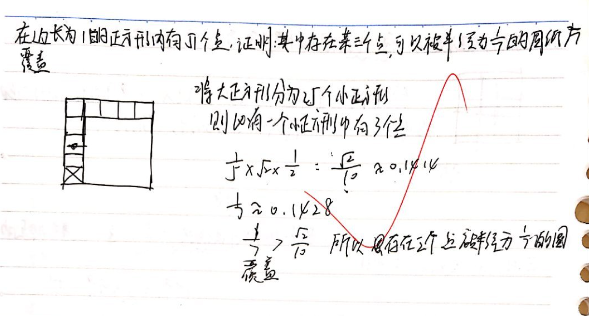 在边长为1的正方形内有51个点,证明:其中存在某三个点,可以被半径为1/7的圆纸片
覆盖
将大正方形分为25个小正方形
则必有一个小正方形中有3个点
1/5×√2×1/2 = √2/10 ≈0.1414
1/7≈0.1428
1/7 > √2/10 所以 存在三个点被半径为1/7的圆
覆盖